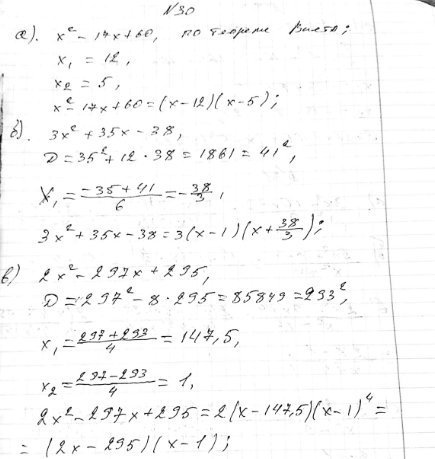 N30
а). x² - 17x + 60, по теореме Виета;
x₁ = 12,
x₂ = 5,
x² - 17x + 60 = (x - 12)(x - 5);
б). 3x² + 35x - 38,
D = 35² + 12 · 38 = 1861 = 41²,
x₁ = (-35 + 41)/6 = -38/3,
3x² + 35x - 38 = 3(x - 1)(x + 38/3);
в) 2x² - 297x + 295,
D = 297² - 8 · 295 = 85849 = 293²,
x₁ = (297 + 293)/4 = 147,5,
x₂ = (297 - 293)/4 = 1,
2x² - 297x + 295 = 2(x - 147,5)(x - 1)⁴ =
= (2x - 295)(x - 1);